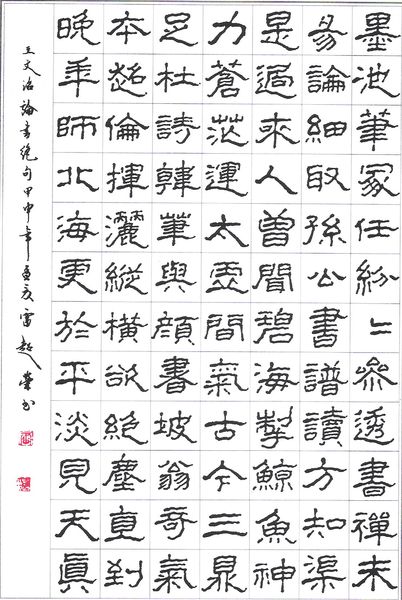 墨池筆冢任紛〻參透書禪未
易論細取孫公書譜讀方知渠
是過來人曾聞碧海掣鯨魚神
力蒼茫運太虛間氣古今三鼎
足杜詩韓筆與顏書坡翁奇氣
本超倫揮灑縱橫欲絕塵直到
晚年師北海更於平淡見天真
王文治論書絕句甲申年孟夏雷超書